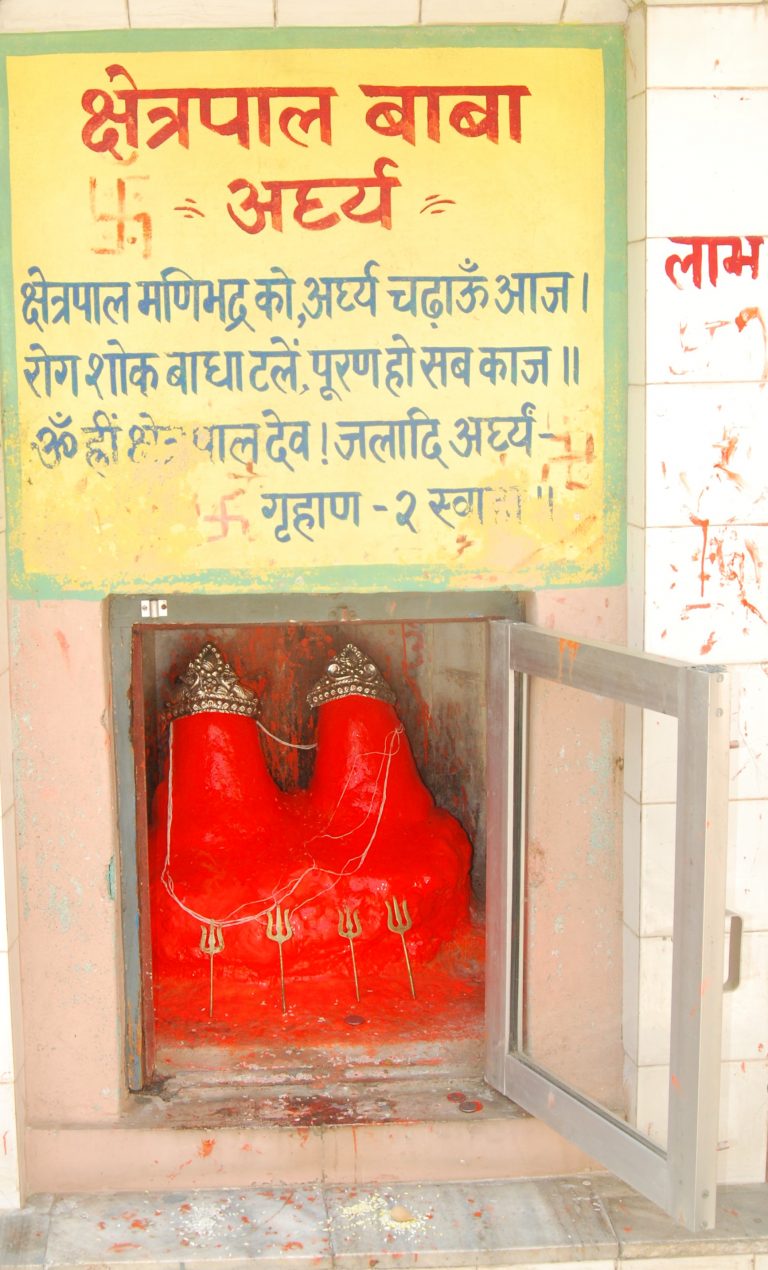 क्षेत्रपाल बाबा
अर्घ्य
क्षेत्रपाल मणिभद्र को, अर्घ्य चढ़ाऊँ आज।
रोग शोक बाघा टलें, पूरण हो सब काज॥
ॐ ह्रीं क्षेत्रपाल देव! जलादि अर्घ्यं-
गृहाण -२ स्वाहा॥
लाभ